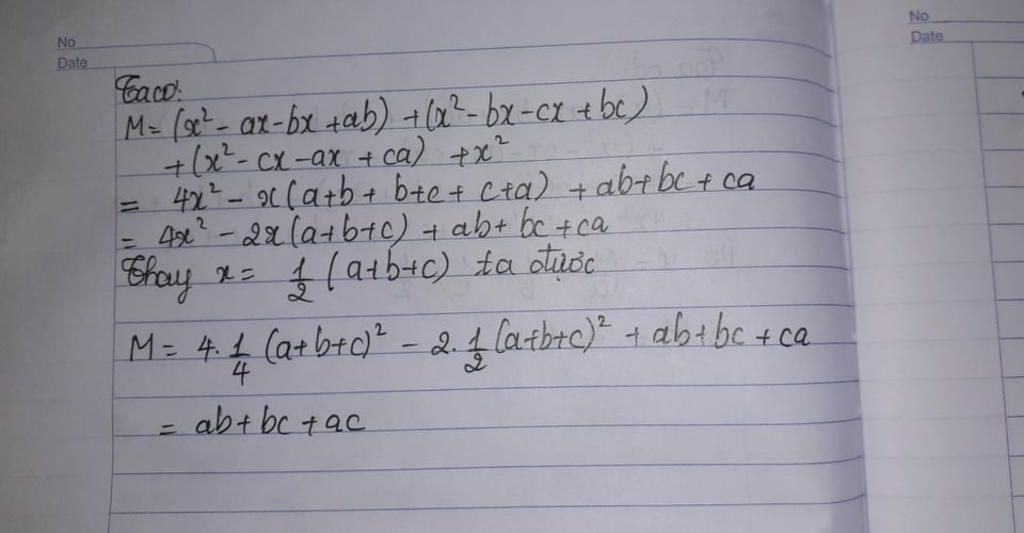 No
Date
No
Date
Ta có:
M = (x² - ax - bx + ab) + (x² - bx - cx + bc)
+ (x² - cx - ax + ca) + x²
= 4x² - x(a+b + b+c + c+a) + ab+bc + ca
= 4x² - 2x(a+b+c) + ab + bc + ca
Thay x = 1/2 (a+b+c) ta được
M = 4. 1/4 (a+b+c)² - 2. 1/2 (a+b+c)² + ab + bc + ca
= ab + bc + ac